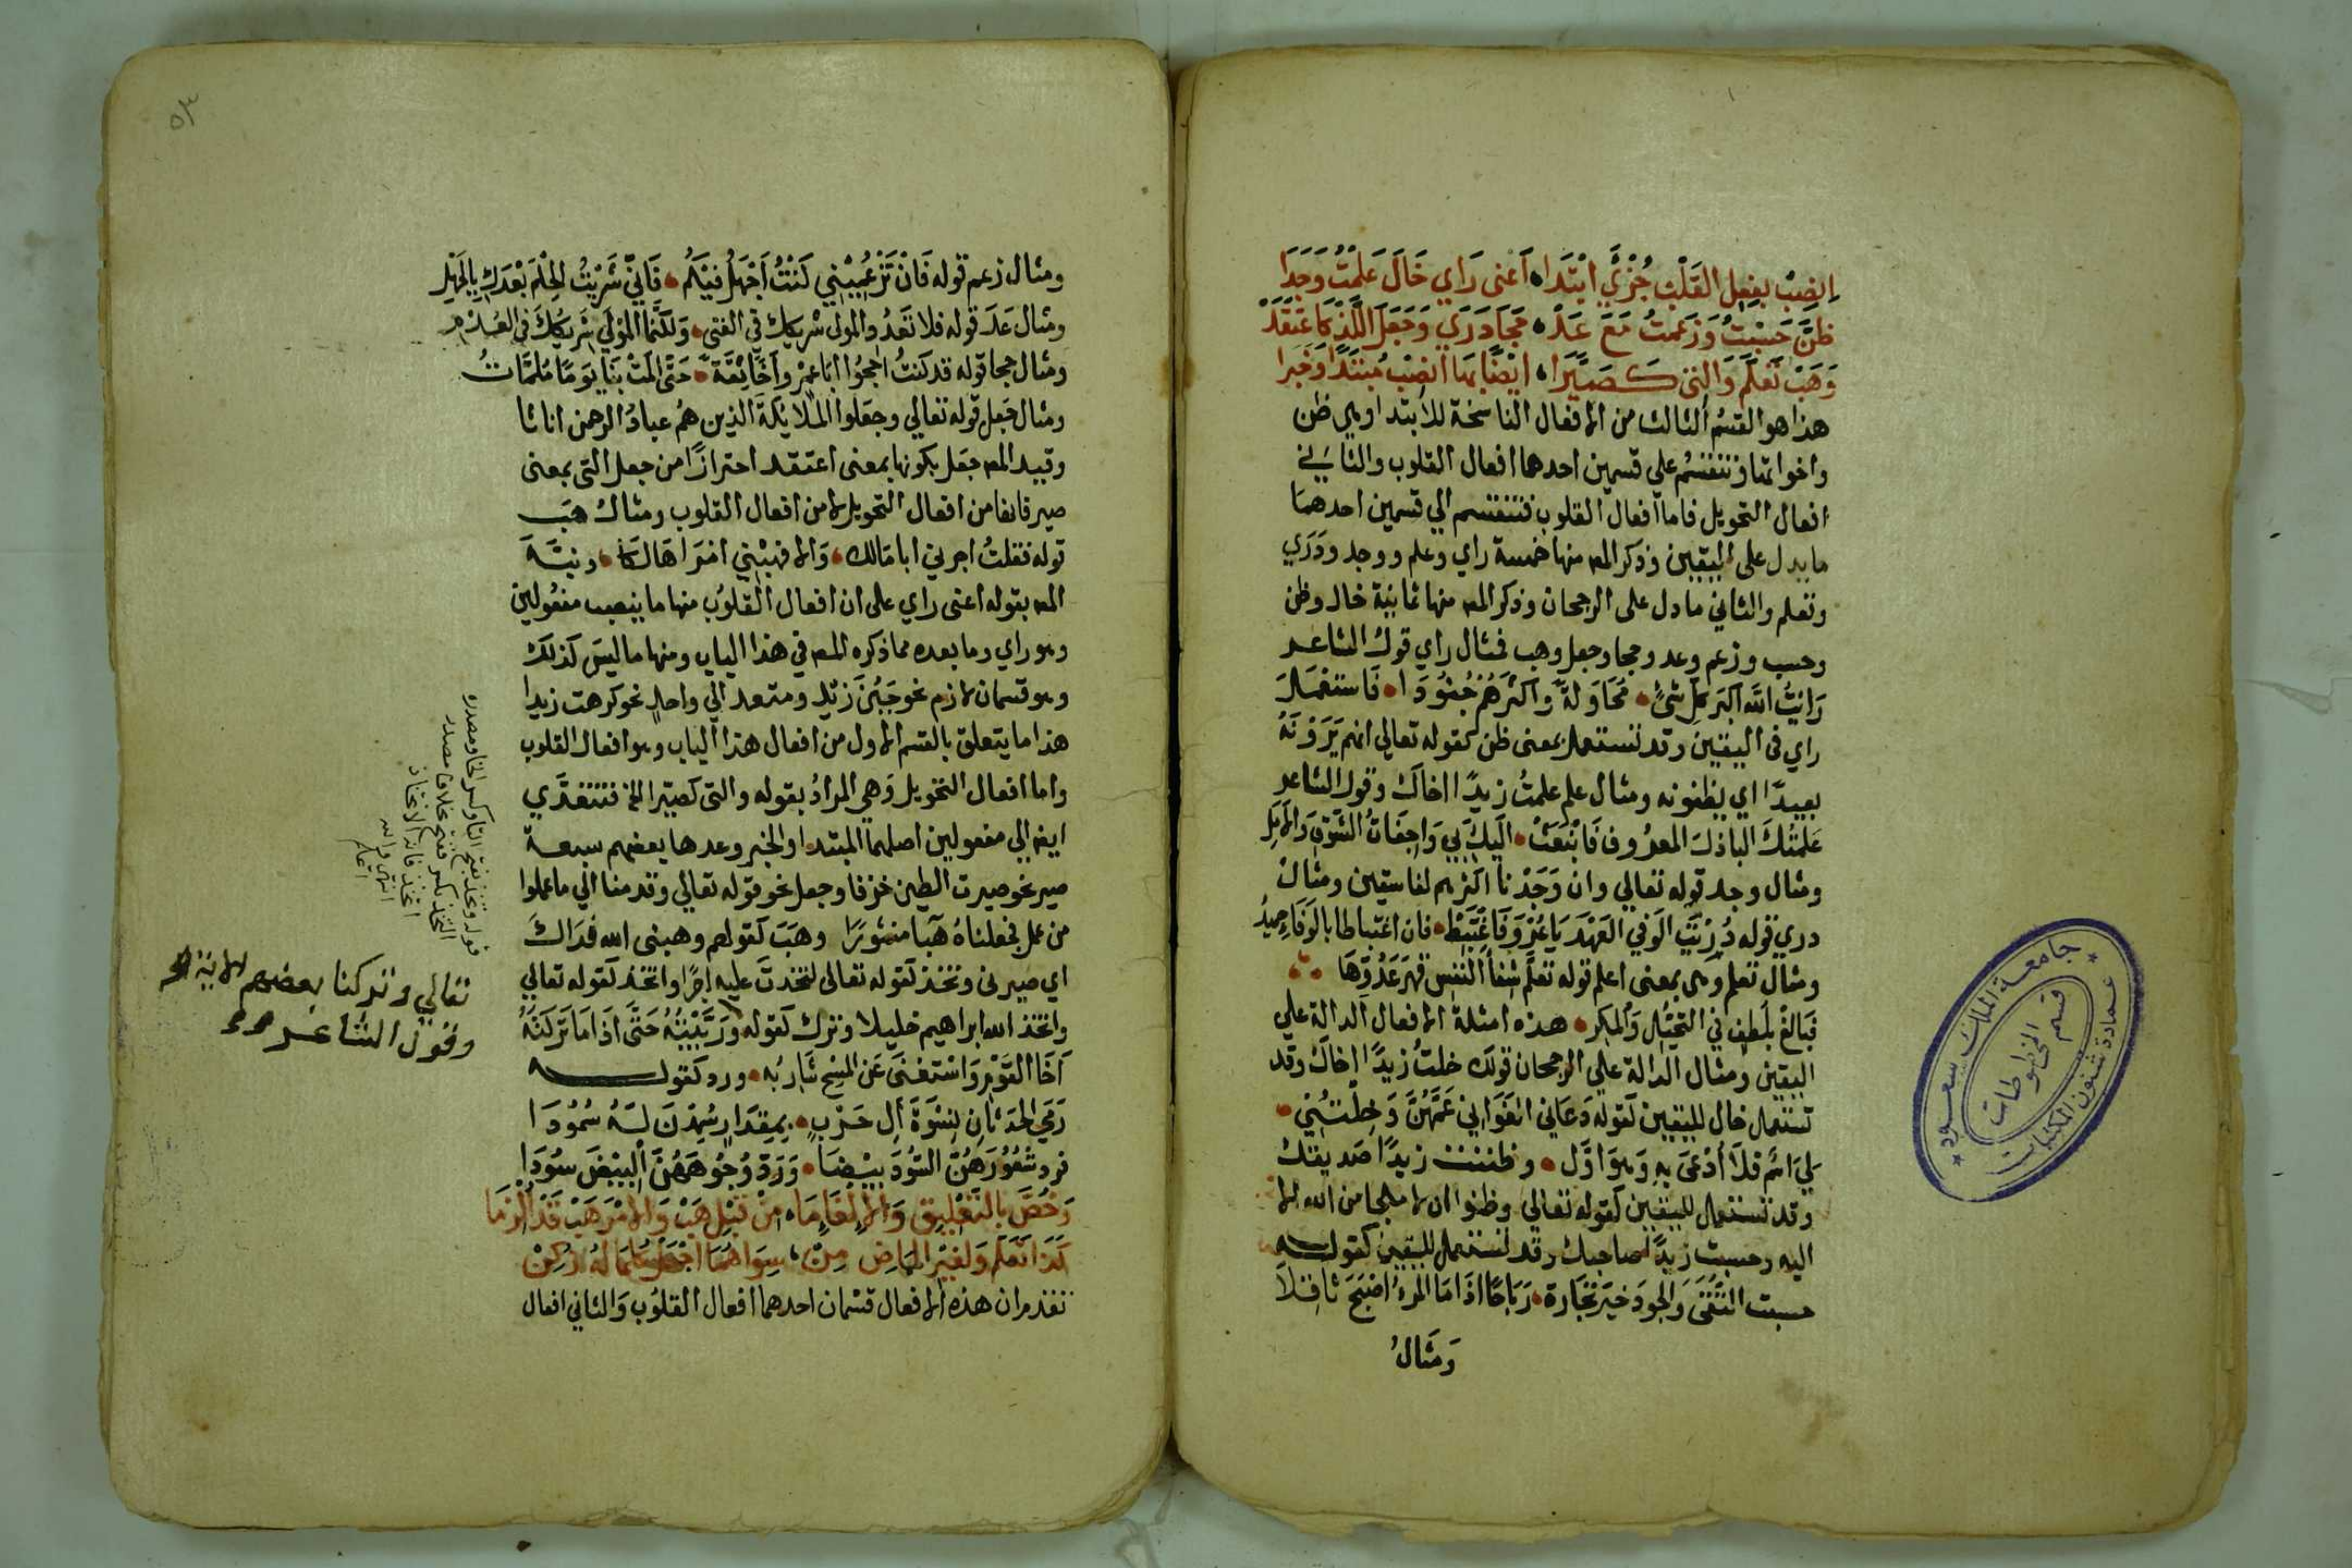 انصب بفعل القلب جزئي ابتدا اعنى راي خال علمت وجدا
ظن حسبت وزعمت مع عد حجا دري وجعل اللذ كاعتقد
وهب تعلم والتي كصيرا ايضا بها انصب مبتدا وخبرا
هذا هو القسم الثالث من الافعال الناسخة للابتدا وهي ظن
واخواتها وتنقسم على قسمين احدهما افعال القلوب والثاني
افعال التحويل فاما افعال القلوب فتنقسم الي قسمين احدهما
ما يدل على اليقين وذكر المص منها خمسة راي وعلم ووجد ودري
وتعلم والثاني ما دل على الرجحان وذكر المص منها ثمانية خال وظن
وحسب وزعم وعد وحجا وجعل وهب فمثال راي قول الشاعر
رايت الله اكبر كل شئ محاولة واكثرهم جنودا فاستعمل
راي في اليقين وقد تستعمل بمعنى ظن كقوله تعالي انهم يرونه
بعيدا اي يظنونه ومثال علم علمت زيدا اخاك وقول الشاعر
علمتك الباذل المعروف فانبعثت اليك بي واجفات الشوق والامل
ومثال وجد قوله تعالي وان وجدنا اكثرهم لفاسقين ومثال
دري قوله دريت الوفي العهد يا عرو فاغتبط فان اغتباطا بالوفاء حميد
ومثال تعلم وهى بمعنى اعلم قوله تعلم شفا النفس قهر عدوها
فبالغ بلطف في التحيل والمكر هذه امثلة الافعال الدالة علي
اليقين ومثال الدالة علي الرجحان قولك خلت زيدا اخاك وقد
تستعمل خال لليقين كقوله دعاني الغواني عمهن وخلتني
لي اسم فلا ادعى به وهو اول وظننت زيدا صديقك
وقد تستعمل لليقين كقوله تعالي وظنوا ان لا ملجا من الله الا
اليه وحسبت زيدا صاحبك وقد تستعمل لليقين كقوله
حسبت التقى والجود خير تجارة رباحا اذا ما المرء اصبح ثاقلا
ومثال
جامعة الملك سعود
قسم المخطوطات
عمادة شئون المكتبات
ومثال زعم قوله فان تزعميني كنت اجهل فيكم فاني شريت الحلم بعدك بالجهل
ومثال عد قوله فلا تعدد المولى شريكك في الغنى ولكنما المولي شريكك في العدم
ومثال حجا قوله قد كنت احجوا ابا عمرو اخا ثقة حتى المت بنا يوما ملمات
ومثال جعل قوله تعالي وجعلوا الملايكة الذين هم عباد الرحمن اناثا
وقيد المص جعل بكونها بمعنى اعتقد احترازا من جعل التي بمعنى
صير فانها من افعال التحويل لا من افعال القلوب ومثال هب
قوله فقلت اجرني ابا مالك والا فهبني امرا هالكا ونبه
المص بقوله اعنى راي على ان افعال القلوب منها ما ينصب مفعولين
وهو راي وما بعده مما ذكره المص في هذا الباب ومنها ما ليس كذلك
وهو قسمان لازم نحو جبن زيد ومتعد الي واحد نحو كرهت زيدا
هذا ما يتعلق بالقسم الاول من افعال هذا الباب وهو افعال القلوب
واما افعال التحويل وهي المراد بقوله والتي كصيرا الخ فتتعدي
ايض الي مفعولين اصلهما المبتدا والخبر وعدها بعضهم سبعة
صير نحو صيرت الطين خزفا وجعل نحو قوله تعالي وقدمنا الي ما عملوا
من عمل فجعلناه هبا منثورا وهب كقولهم وهبنى الله فداك
اي صيرنى وتخذ كقوله تعالى لتخذت عليه اجرا واتخذ كقوله تعالي
واتخذ الله ابراهيم خليلا وترك كقوله وربيته حتى اذا ما تركته
اخا القوم واستغنى عن المسح شاربه ورد كقوله
رمي الحدثان نسوة ال حرب بمقدار سمدن له سمودا
فرد شعورهن السود بيضا ورد وجوههن البيض سودا
وخص بالتعليق والالغاء ما من قبل هب والامر هب قد الزما
كذا تعلم ولغير الماض من سواهما اجعل كلما له زكن
تقدم ان هذه الافعال قسمان احدهما افعال القلوب والثاني افعال
قوله وتخذ بفتح التا وكسر الخا ومصدره
اتخذ فانه الاتخاذ
انتهى والله
اعلم
تعالي وتركنا بعضهم الاية
وقول الشاعر